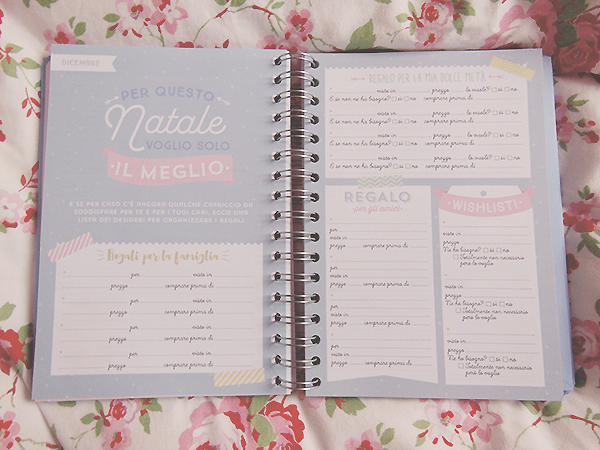 DICEMBRE
PER QUESTO
Natale
VOGLIO SOLO
IL MEGLIO
E SE PER CASO C'È ANCORA QUALCHE CAPRICCIO DA
SODDISFARE PER TE E PER I TUOI CARI, ECCO UNA
LISTA DEI DESIDERI PER ORGANIZZARE I REGALI
Regali per la famiglia
per visto in
prezzo comprare prima di
per visto in
prezzo comprare prima di
per visto in
prezzo comprare prima di
per visto in
prezzo comprare prima di
REGALO PER LA MIA DOLCE METÀ
visto in prezzo lo vuole? sì no
E se non ne ha bisogno? sì no comprare prima di
visto in prezzo lo vuole? sì no
E se non ne ha bisogno? sì no comprare prima di
visto in prezzo lo vuole? sì no
E se non ne ha bisogno? sì no comprare prima di
REGALO
per gli amici
per
visto in
prezzo comprare prima di
per
visto in
prezzo comprare prima di
per
visto in
prezzo comprare prima di
per
visto in
prezzo comprare prima di
WISHLIST!
visto in
prezzo
Ne ho bisogno? sì no
Totalmente non necessario
però lo voglio
visto in
prezzo
Ne ho bisogno? sì no
Totalmente non necessario
però lo voglio
visto in
prezzo
Ne ho bisogno? sì no
Totalmente non necessario
però lo voglio